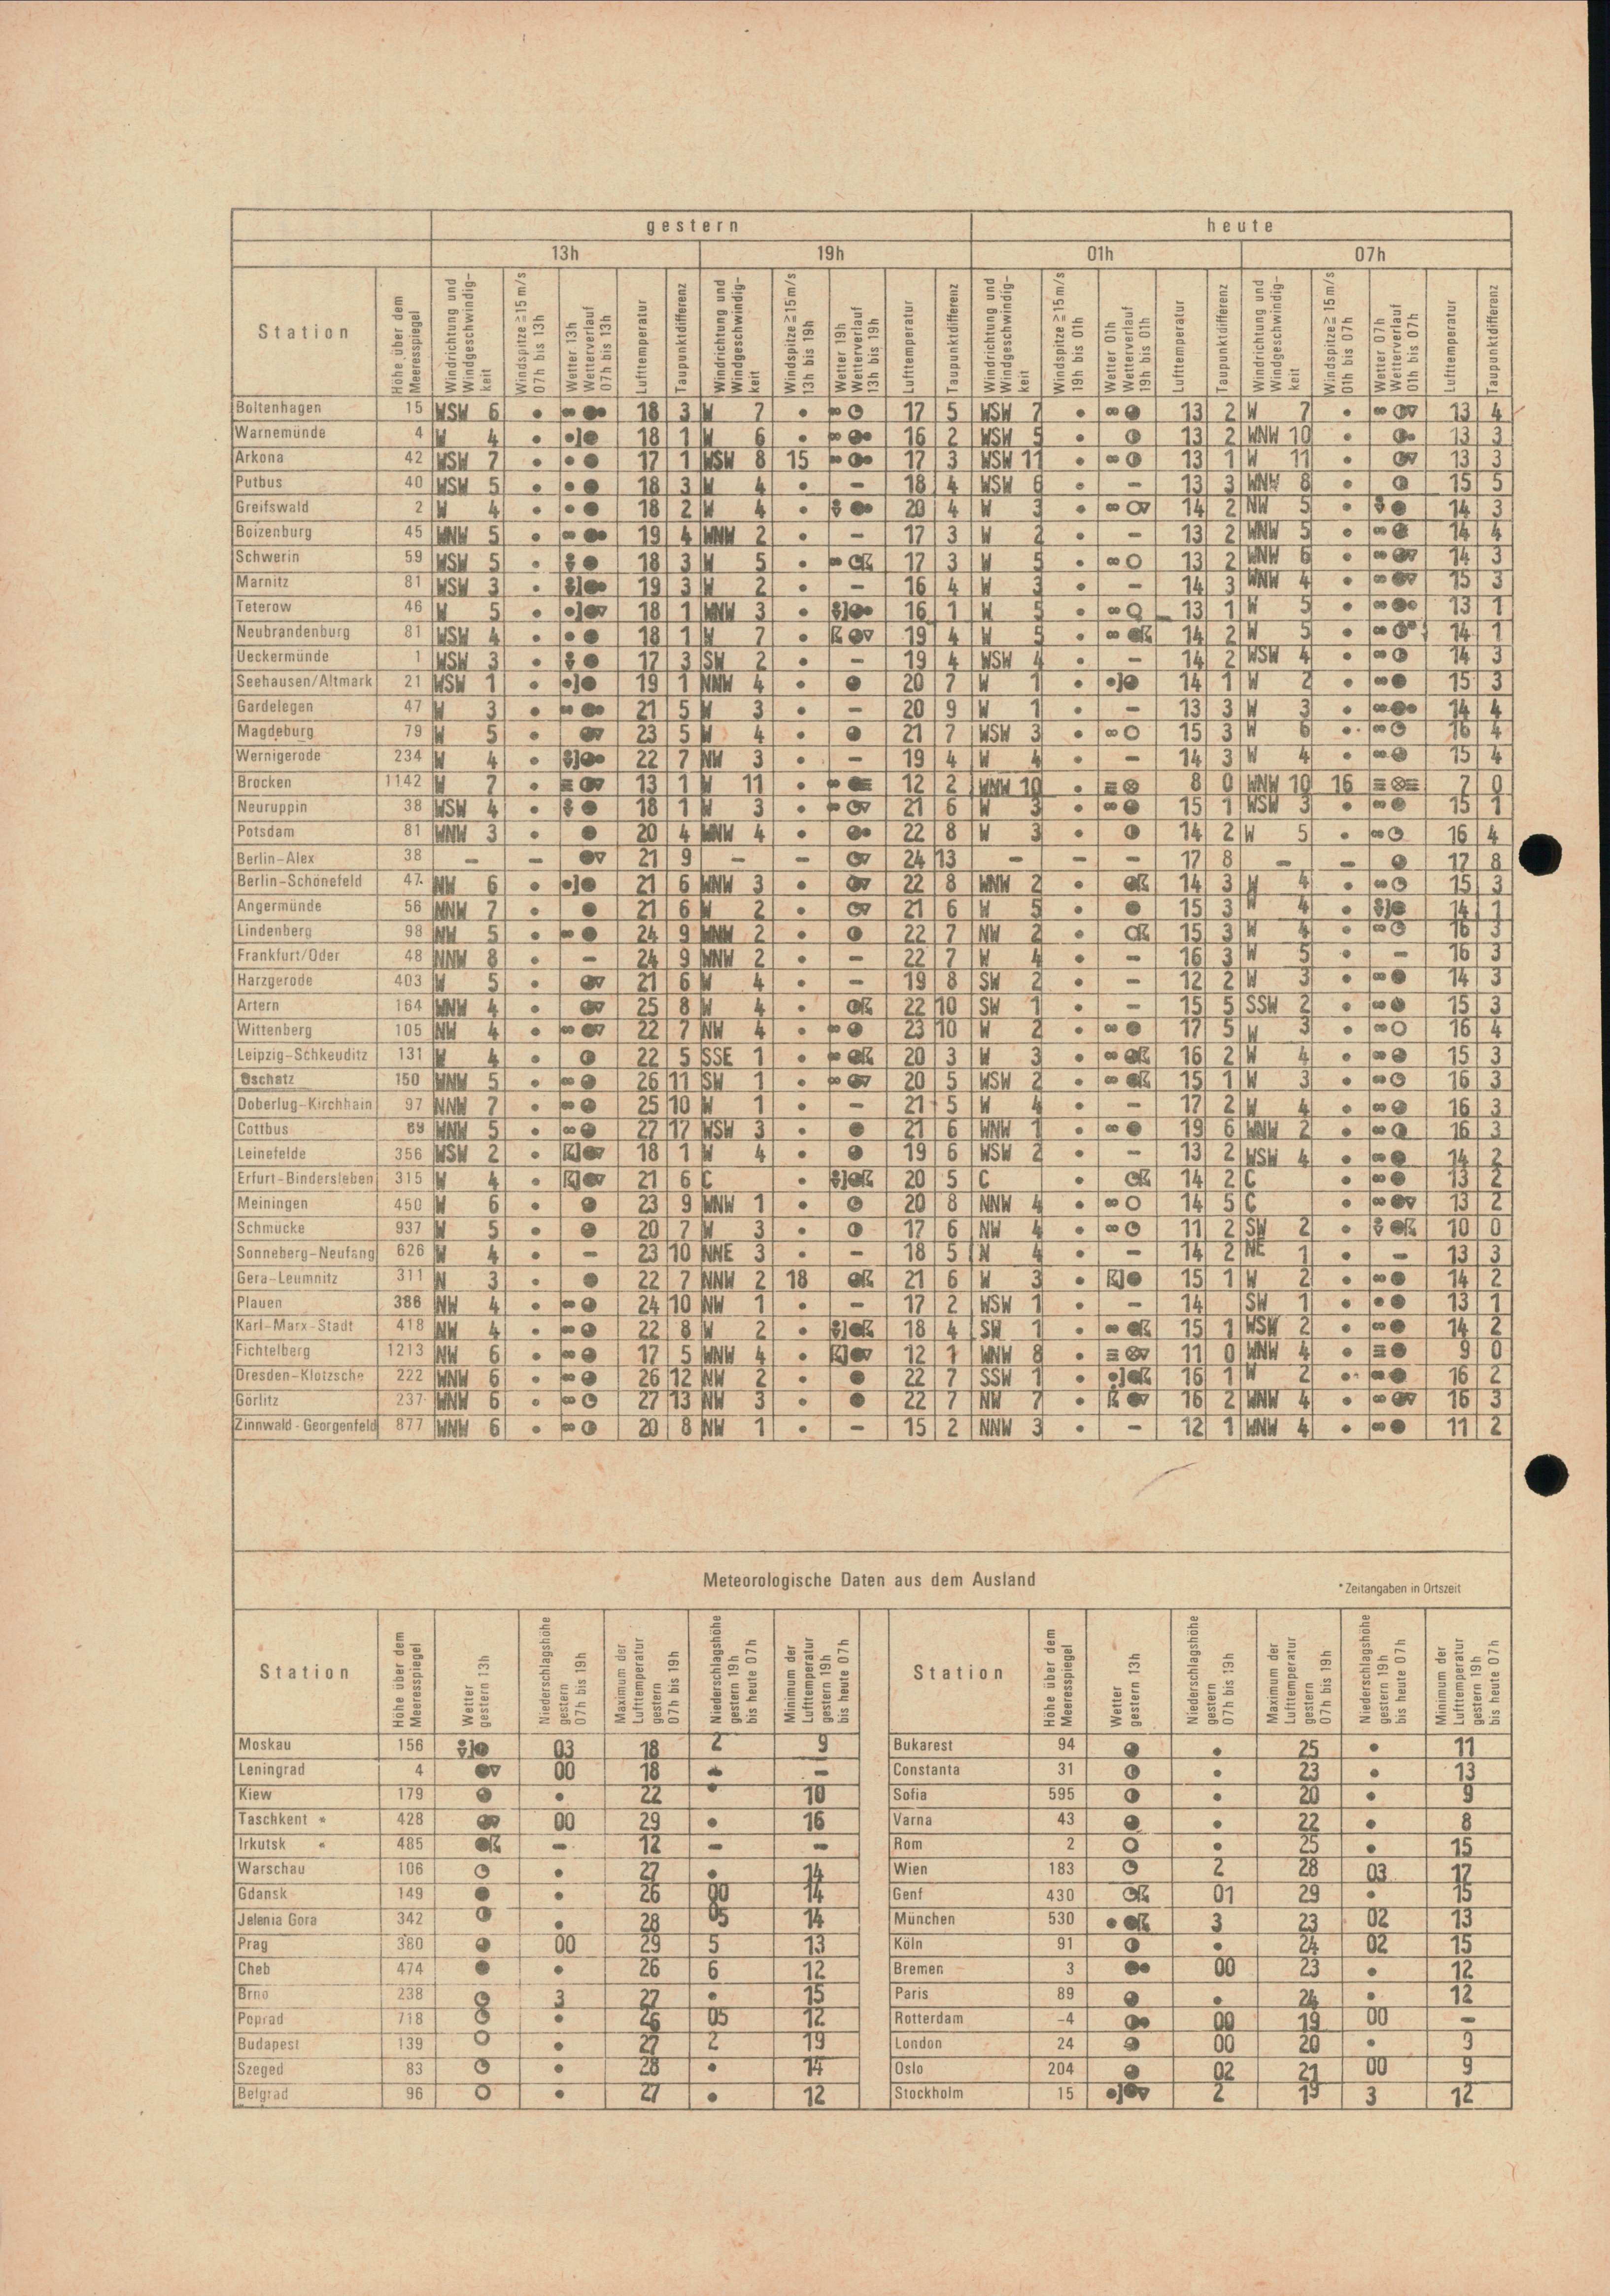 gestern heute
13h 19h 01h 07h
Station Höhe über dem Meeresspiegel Windrichtung und Windgeschwindig-keit Windspitze ≥15m/s 07h bis 13h Wetter 13h Wetterverlauf 07h bis 13h Lufttemperatur Taupunktdifferenz Windrichtung und Windgeschwindig-keit Windspitze ≥15m/s 13h bis 19h Wetter 19h Wetterverlauf 13h bis 19h Lufttemperatur Taupunktdifferenz Windrichtung und Windgeschwindig-keit Windspitze ≥15m/s 19h bis 01h Wetter 01h Wetterverlauf 19h bis 01h Lufttemperatur Taupunktdifferenz Windrichtung und Windgeschwindig-keit Windspitze ≥15m/s 01h bis 07h Wetter 07h Wetterverlauf 01h bis 07h Lufttemperatur Taupunktdifferenz
Boltenhagen 15 WSW 6 • 18 3 W 7 • 17 5 WSW 7 • 13 2 W 7 • 13 4
Warnemünde 4 W 4 • 18 1 W 6 • 16 2 WSW 5 • 13 2 WNW 10 • 13 3
Arkona 42 WSW 7 • 17 1 WSW 8 15 17 3 WSW 11 • 13 1 W 11 • 13 3
Putbus 40 WSW 5 • 18 3 W 4 • – 18 4 WSW 6 • – 13 3 WNW 8 • 15 5
Greifswald 2 W 4 • 18 2 W 4 • 20 4 W 3 • 14 2 NW 5 • 14 3
Boizenburg 45 WNW 5 • 19 4 WNW 2 • – 17 3 W 2 • – 13 2 WNW 5 • 14 4
Schwerin 59 WSW 5 • 18 3 W 5 • 17 3 W 5 • 13 2 WNW 6 • 14 3
Marnitz 81 WSW 3 • 19 3 W 2 • – 16 4 W 3 • – 14 3 WNW 4 • 15 3
Teterow 46 W 5 • 18 1 WNW 3 • 16 1 W 5 • 13 1 W 5 • 13 1
Neubrandenburg 81 WSW 4 • 18 1 W 7 • 19 4 W 5 • 14 2 W 5 • 14 1
Ueckermünde 1 WSW 3 • 17 3 SW 2 • – 19 4 WSW 4 • – 14 2 WSW 4 • 14 3
Seehausen/Altmark 21 WSW 1 • 19 1 NNW 4 • 20 7 W 1 • 14 1 W 2 • 15 3
Gardelegen 47 W 3 • 21 5 W 3 • – 20 9 W 1 • – 13 3 W 3 • 14 4
Magdeburg 79 W 5 • 23 5 W 4 • 21 7 WSW 3 • 15 3 W 6 • 16 4
Wernigerode 234 W 4 • 22 7 NW 3 • – 19 4 W 4 • – 14 3 W 4 • 15 4
Brocken 1142 W 7 • 13 1 W 11 • 12 2 WNW 10 • 8 0 WNW 10 16 7 0
Neuruppin 38 WSW 4 • 18 1 W 3 • 21 6 W 3 • 15 1 WSW 3 • 15 1
Potsdam 81 WNW 3 • 20 4 WNW 4 • 22 8 W 3 • 14 2 W 5 • 16 4
Berlin-Alex 38 – – 21 9 – – 24 13 – – – 17 8 – – 17 8
Berlin-Schönefeld 47 NW 6 • 21 6 WNW 3 • 22 8 WNW 2 • 14 3 W 4 • 15 3
Angermünde 56 NNW 7 • 21 6 W 2 • 21 6 W 5 • 15 3 W 4 • 14 1
Lindenberg 98 NW 5 • 24 9 WNW 2 • 22 7 NW 2 • 15 3 W 4 • 16 3
Frankfurt/Oder 48 NNW 8 • – 24 9 WNW 2 • – 22 7 W 4 • – 16 3 W 5 • – 16 3
Harzgerode 403 W 5 • 21 6 W 4 • – 19 8 SW 2 • – 12 2 W 3 • 14 3
Artern 164 WNW 4 • 25 8 W 4 • 22 10 SW 1 • – 15 5 SSW 2 • 15 3
Wittenberg 105 NW 4 • 22 7 NW 4 • 23 10 W 2 • 17 5 W 3 • 16 4
Leipzig-Schkeuditz 131 W 4 • 22 5 SSE 1 • 20 3 W 3 • 16 2 W 4 • 15 3
Oschatz 150 WNW 5 • 26 11 SW 1 • 20 5 WSW 2 • 15 1 W 3 • 16 3
Doberlug-Kirchhain 97 NNW 7 • 25 10 W 1 • – 21 5 W 4 • – 17 2 W 4 • 16 3
Cottbus 69 WNW 5 • 27 17 WSW 3 • 21 6 WNW 1 • 19 6 WNW 2 • 16 3
Leinefelde 356 WSW 2 • 18 1 W 4 • 19 6 WSW 2 • – 13 2 WSW 4 • 14 2
Erfurt-Bindersleben 315 W 4 • 21 6 C • 20 5 C • 14 2 C • 13 2
Meiningen 450 W 6 • 23 9 WNW 1 • 20 8 NNW 4 • 14 5 C • 13 2
Schmücke 937 W 5 • 20 7 W 3 • 17 6 NW 4 • 11 2 SW 2 • 10 0
Sonneberg-Neufang 626 W 4 • – 23 10 NNE 3 • – 18 5 N 4 • – 14 2 NE 1 • – 13 3
Gera-Leumnitz 311 N 3 • 22 7 NNW 2 18 21 6 W 3 • 15 1 W 2 • 14 2
Plauen 386 NW 4 • 24 10 NW 1 • – 17 2 WSW 1 • – 14 SW 1 • 13 1
Karl-Marx-Stadt 418 NW 4 • 22 8 W 2 • 18 4 SW 1 • 15 1 WSW 2 • 14 2
Fichtelberg 1213 NW 6 • 17 5 WNW 4 • 12 1 WNW 8 • 11 0 WNW 4 • 9 0
Dresden-Klotzsche 222 WNW 6 • 26 12 NW 2 • 22 7 SSW 1 • 16 1 W 2 • 16 2
Görlitz 237 WNW 6 • 27 13 NW 3 • 22 7 NW 7 • 16 2 WNW 4 • 16 3
Zinnwald-Georgenfeld 877 WNW 6 • 20 8 NW 1 • – 15 2 NNW 3 • – 12 1 WNW 4 • 11 2
Meteorologische Daten aus dem Ausland
*Zeitangaben in Ortszeit
Station Höhe über dem Meeresspiegel Wetter gestern 13h Niederschlagshöhe gestern 07h bis 19h Maximum der Lufttemperatur gestern 07h bis 19h Niederschlagshöhe gestern 19h bis heute 07h Minimum der Lufttemperatur gestern 19h bis heute 07h
Station Höhe über dem Meeresspiegel Wetter gestern 13h Niederschlagshöhe gestern 07h bis 19h Maximum der Lufttemperatur gestern 07h bis 19h Niederschlagshöhe gestern 19h bis heute 07h Minimum der Lufttemperatur gestern 19h bis heute 07h
Moskau 156 03 18 2 9 Bukarest 94 • 25 • 11
Leningrad 4 00 18 – – Constanta 31 • 23 • 13
Kiew 179 • 22 • 10 Sofia 595 • 20 • 9
Taschkent * 428 00 29 • 16 Varna 43 • 22 • 8
Irkutsk * 485 – 12 – – Rom 2 • 25 • 15
Warschau 106 • 27 • 14 Wien 183 2 28 03 17
Gdansk 149 • 26 00 14 Genf 430 01 29 • 15
Jelenia Gora 342 • 28 05 14 München 530 3 23 02 13
Prag 380 00 29 5 13 Köln 91 • 24 02 15
Cheb 474 • 26 6 12 Bremen 3 00 23 • 12
Brno 238 3 27 • 15 Paris 89 • 24 • 12
Poprad 718 • 26 05 12 Rotterdam -4 00 19 00 –
Budapest 139 • 27 2 19 London 24 00 20 • 9
Szeged 83 • 28 • 14 Oslo 204 02 21 00 9
Belgrad 96 • 27 • 12 Stockholm 15 2 19 3 12